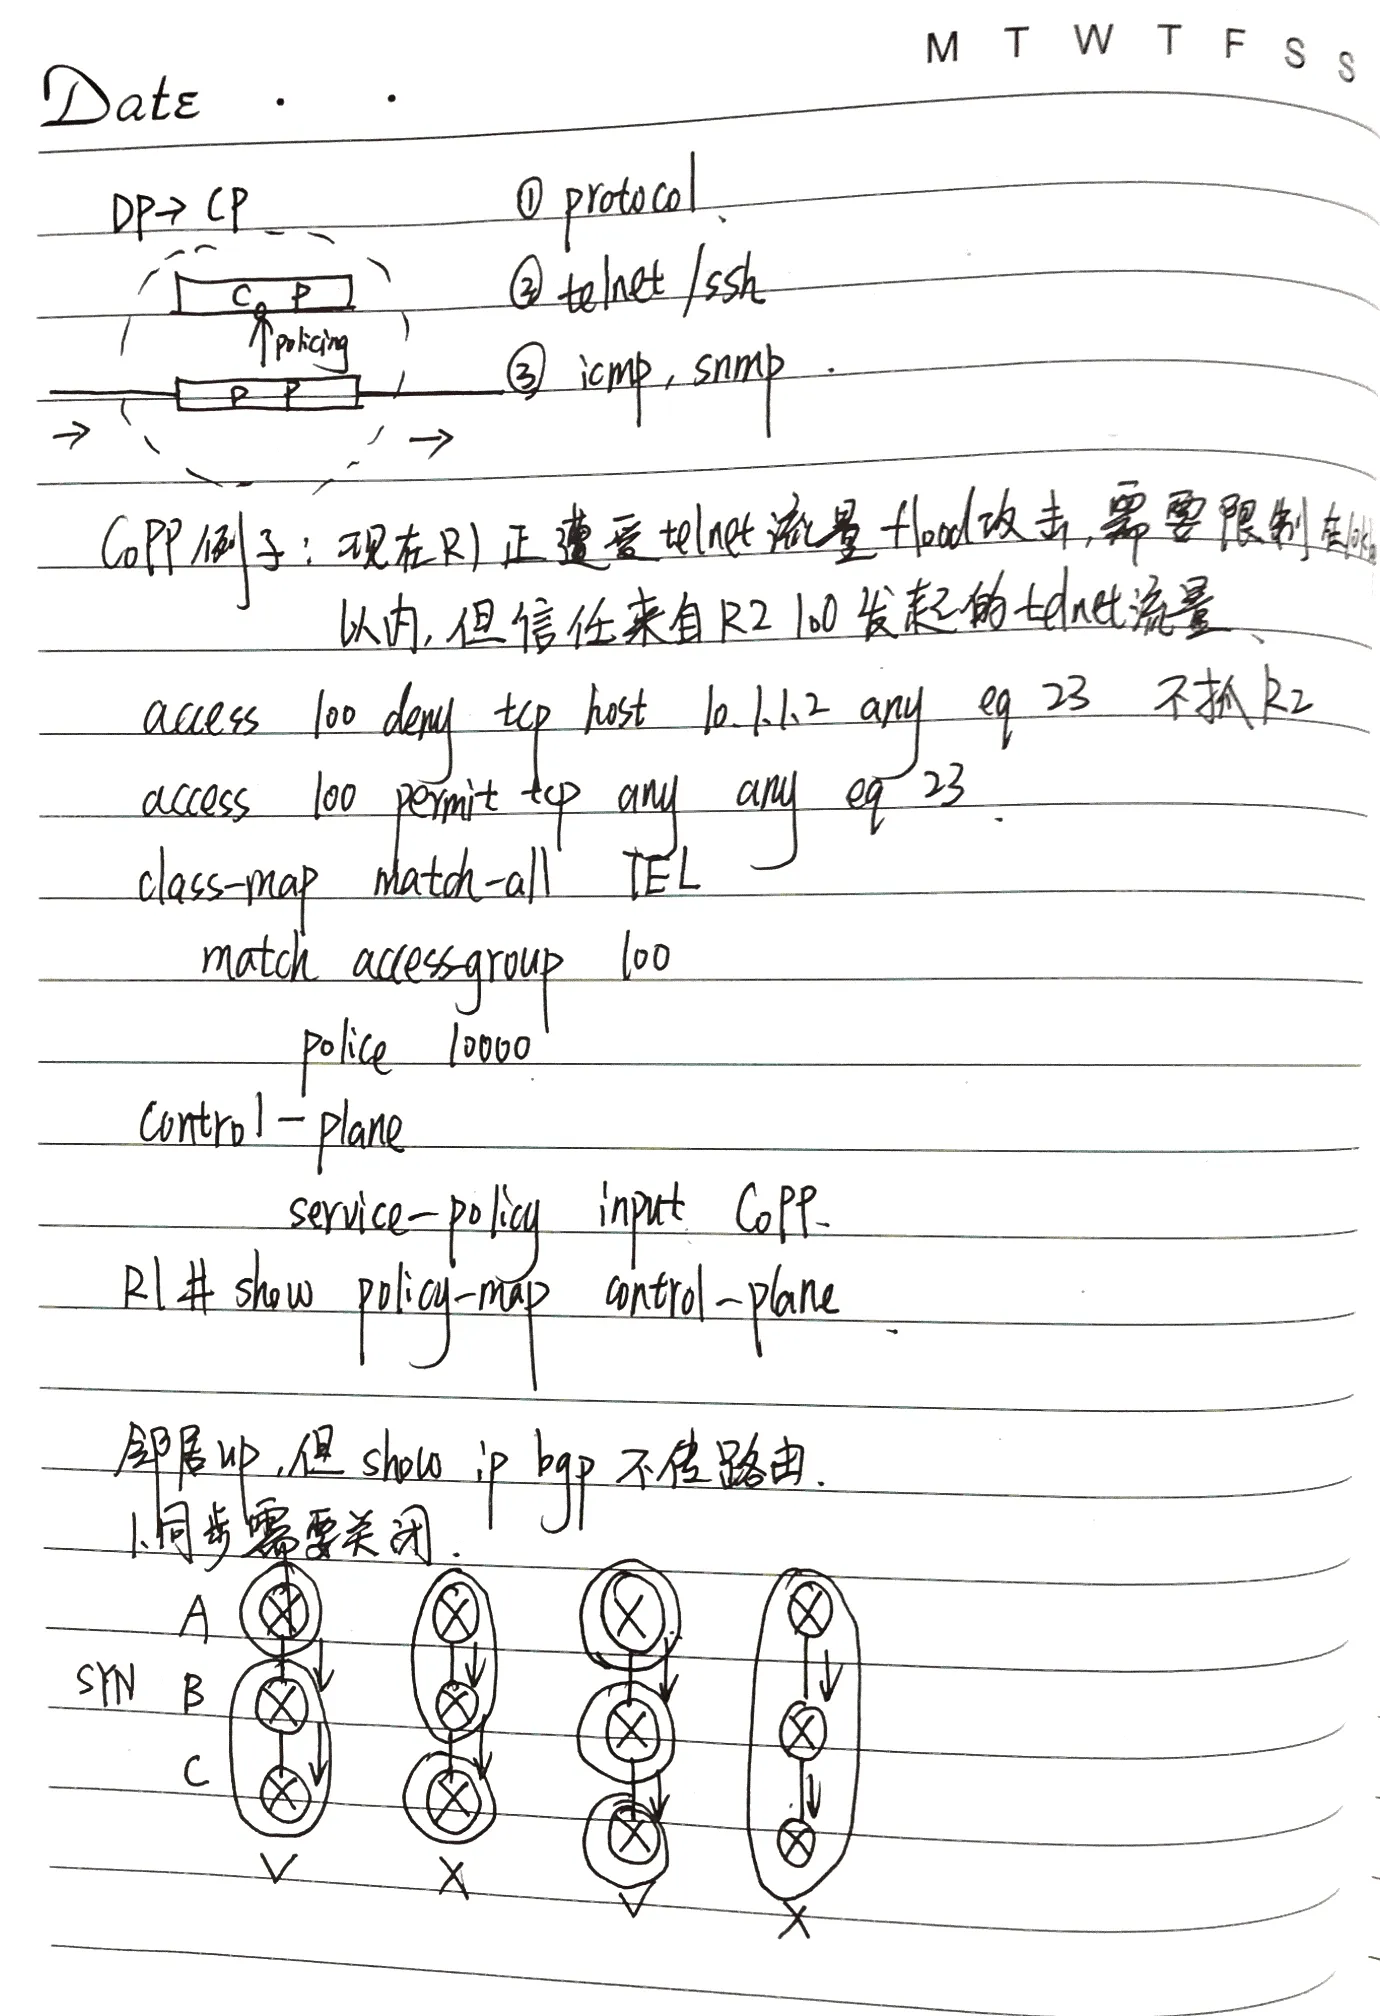 M T W T F S S
Date . .
DP→ CP
① protocol.
C P
② telnet /ssh
policing
③ icmp, snmp.
D P
CoPP例子: 现在R1正遭受telnet流量flood攻击, 需要限制在10k
以内, 但信任来自R2 100发起的telnet流量.
access 100 deny tcp host 10.1.1.2 any eq 23 不抓R2
access 100 permit tcp any any eq 23.
class-map match-all TEL
match access-group 100
police 10000
control-plane
service-policy input CoPP.
R1# show policy-map control-plane.
邻居up, 但show ip bgp 不传路由.
1.同步需要关闭.
A
SYN B
C
V X V X